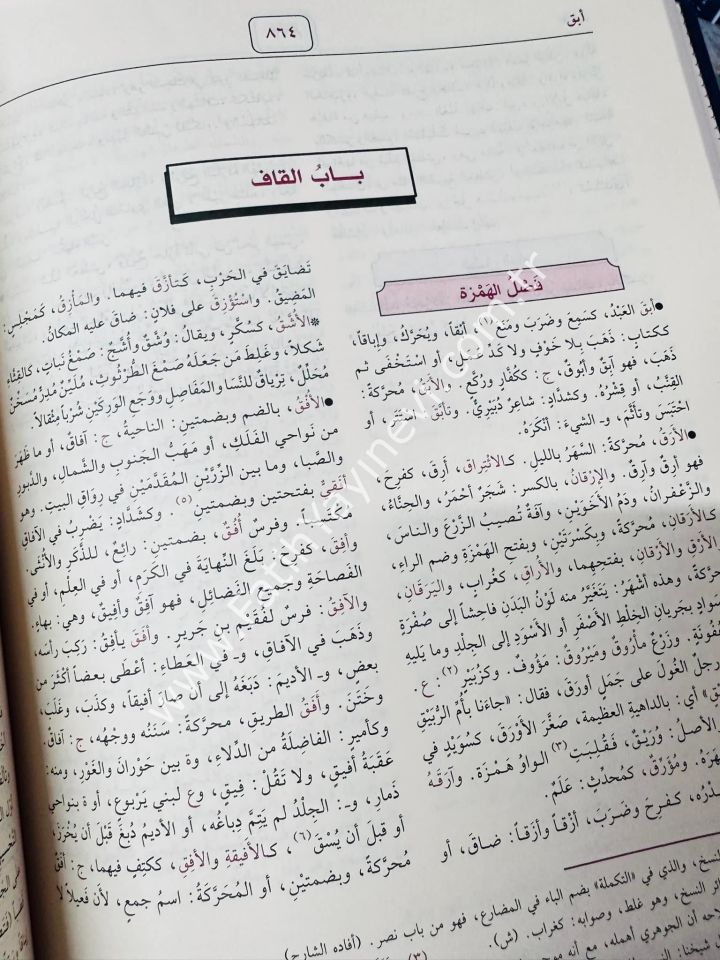 أبق
٨٦٤
بـــابُ القاف
فَصْلُ الهَمْزَة
●أبَقَ العَبْدُ، كَسَمِعَ وضَرَبَ ومَنَعَ (١)، أبْقاً، ويُحَرَّكُ، وإباقاً،
ككتابٍ: ذَهَبَ بِلا خَوْفٍ ولا كَدِّ عَمَلٍ، أو اسْتَخْفَى ثم
ذَهَبَ، فهو آبِقٌ وأبُوقٌ، ج: ككُفَّارٍ ورُكَّعٍ. والأبَقُ، مُحرَّكةً:
القِنَّبُ، أو قِشْرُهُ. وكشَدَّادٍ: شاعِرٌ دُبَيْرِيٌّ. وتأبَّقَ: اسْتَتَرَ، أو
احْتَبَسَ وتأثَّمَ، و ـ الشيءَ: أنْكَرَهُ.
●الأرَقُ، مُحرَّكةً: السَّهَرُ بالليلِ. كالائْتِراقِ، أرِقَ، كفَرِحَ،
فهو أرِقٌ وآرِقٌ. والإِرْقانُ، بالكسر: شَجَرٌ أحْمَرُ، والحِنَّاءُ،
والزَّعْفَرانُ، ودَمُ الأخَوَيْنِ، وآفَةٌ تُصيبُ الزَّرْعَ والناسَ،
كالأرَقانِ، مُحرَّكةً، وبكَسْرَتَيْنِ، وبفتح الهَمْزَةِ وضم الراءِ،
والأرْقِ والأرْقانِ، بفَتْحِهِما، والأُراقِ، كغُرابٍ، واليَرَقانِ،
مُحرَّكةً، وهذه أشْهَرُ: يَتَغَيَّرُ منه لَوْنُ البَدَنِ فاحِشاً إلى صُفْرَةٍ
سَوادٍ بجَريانِ الخِلْطِ الأصْفَرِ أو الأسْوَدِ إلى الجِلْدِ وما يَليهِ
عُفُونَةٍ. وزَرْعٌ مأرُوقٌ ومَيْرُوقٌ: مَؤُوفٌ. وكزُبَيْرٍ (٢): ع.
رجلُ الغُولَ على جَمَلٍ أورَقَ، فقال: «جاءَنا بأُمِّ الرُّبَيْقِ
أي: بالداهِيةِ العظيمةِ، صَغَّرَ الأوْرَقَ، كسُوَيْدٍ في
الأصلُ: وُرَيْقٌ، فقُلِبَتِ (٣) الواوُ هَمْزَةً. وآرَقَهُ
ومُؤَرِّقٌ، كمُحدِّثٍ: عَلَمٌ.
كفَرِحَ وضَرَبَ، أزْقاً وأزَقاً: ضاقَ، أو
تَضايَقَ في الحَرْبِ، كَتَأزَّقَ فيهما. والمَأزِقُ، كمَجْلِسٍ:
المَضِيقُ. واسْتُؤْزِقَ على فلانٍ: ضاقَ عليه المكانُ.
*الأُشَّقُ، كسُكَّرٍ، ويقالُ: وُشَّقٌ وأُشَّجٌ: صَمْغُ نَباتٍ، كالقِثَّاءِ
شَكلاً، وغَلِطَ مَن جَعَلَهُ صَمْغَ الطُّرْثُوثِ، مُلَيِّنٌ مُدِرٌّ مُسَخِّنٌ
مُحَلِّلٌ، تِرْياقٌ للنَّسَا والمَفاصِلِ ووَجَعِ الوَرِكَيْنِ شُرْباً مِثْقالاً.
●الأُفْقُ، بالضم وبضمتين: الناحيةُ، ج: آفاقٌ، أو ما ظَهَرَ
من نَواحِي الفَلَكِ، أو مَهَبُّ الجَنوبِ والشَّمالِ، والدَّبُورِ
والصَّبا، وما بين الزِّرَّيْنِ المُقَدَّمَيْنِ في رِواقِ البيت. وهو
أَفَقِيٌّ بفتحتين وبضمتين (٥). وكشَدَّادٍ: يَضْرِبُ في الآفاقِ
مُكْتَسِباً. وفرسٌ أُفُقٌ، بضمتين: رائِعٌ، للذَّكَرِ والأُنْثَى.
وأفِقَ، كفَرِحَ: بَلَغَ النِّهايَةَ في الكَرَمِ، أو في العِلْمِ، أو في
الفَصاحَةِ وجميعِ الفَضائلِ، فهو آفِقٌ وأفِيقٌ، وهي: بهاءٍ.
والآفِقُ: فرسٌ لفُقَيْمِ بنِ جَريرٍ. وأفَقَ يأفِقُ: رَكِبَ رأسَه،
وذَهَبَ في الآفاقِ، و ـ في العَطاءِ: أعْطَى بعضاً أكْثَرَ من
بعضٍ، و ـ الأديمَ: دَبَغَهُ إلى أن صارَ أفيقاً، وكَذَبَ، وغَلَبَ،
وخَتَنَ. وأفَقُ الطريقِ، محرَّكةً: سَنَنُه ووجْهُه، ج: آفاقٌ.
وكأميرٍ: الفاضِلَةُ من الدِّلاءِ، وة بين حَوْرانَ والغَوْرِ، ومنه:
عَقَبَةُ أفيقٍ، ولا تَقُلْ: فِيقٍ، وع لبني يَرْبوعٍ، أو ة بنواحي
ذَمارِ، و ـ: الجِلْدُ لم يَتِمَّ دِباغُه، أو الأديمُ دُبِغَ قَبْلَ أن يُخْرَزَ،
أو قبلَ أن يُشَقَّ (٦)، كـالأفيقةِ والأفِقِ، ككتِفٍ فيهما، ج: أفَقٌ
محرَّكةً، وبضمتينِ، أو المُحَرَّكةُ: اسمُ جمعٍ، لأن فَعيلاً لا
النسخ، والذي في «التكملة» بضم الباء في المضارع، فهو من باب نصر. (أفاده الشارح)
النسخ، وهو غلط، وصوابه: كغراب. (ش).
أن الجوهري أهمله، مع أنه
www.FatihYayinevi.com.tr